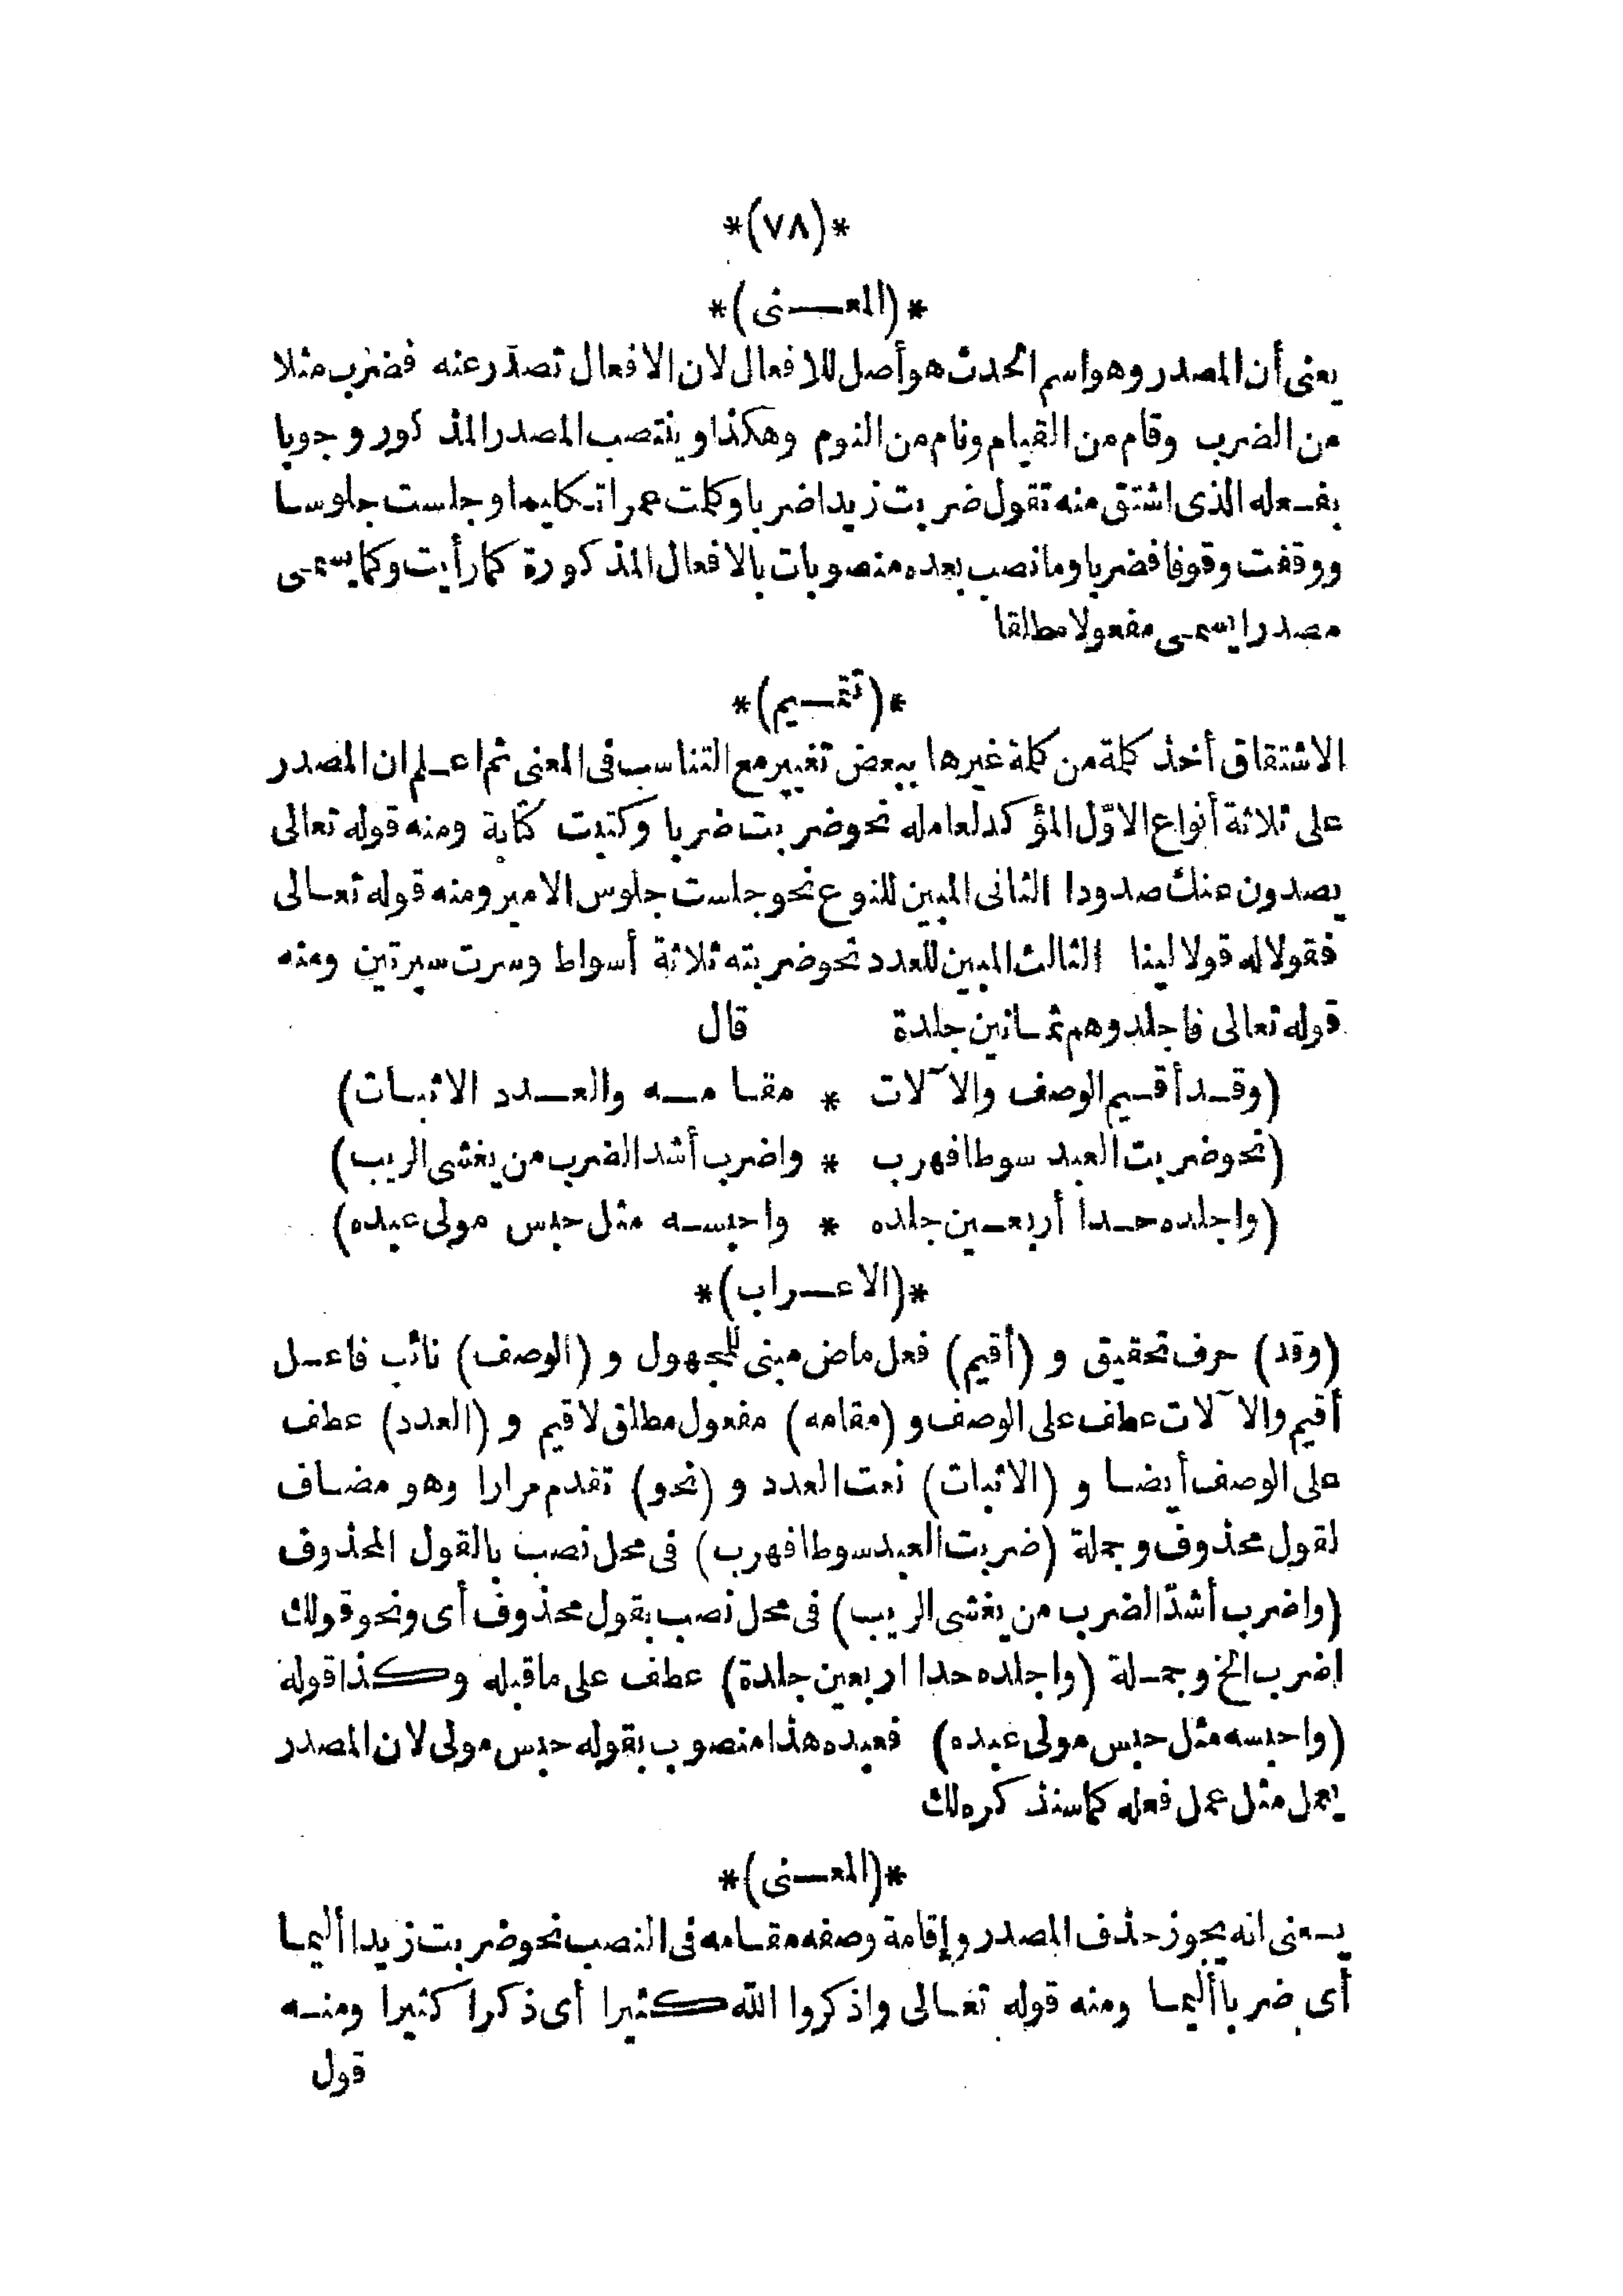 *(٧٨)*
*(المعـنى)*
يعنى أن المصدر وهو اسم الحدث هو أصل للافعال لان الافعال تصدّر عنه فضرب مثلا
من الضرب وقام من القيام ونام من النوم وهكذا وينتصب المصدر المذكور وجوبا
بفـعله الذى اشتق منه تقول ضربت زيدا ضربا وكلمت عمرا تـكليما وجلست جلوسا
ووقفت وقوفا فضربا وما نصب بعده منصوبات بالافعال المذكورة كما رأيت وكما يسمى
مصدرا يسمى مفعولا مطلقا
*(تتمـيم)*
الاشتقاق أخذ كلمة من كلمة غيرها ببعض تغيير مع التناسب فى المعنى ثم اعـلم ان المصدر
على ثلاثة أنواع الاوّل المؤكد لعامله نحو ضربت ضربا وكتبت كتابة ومنه قوله تعالى
يصدون عنك صدودا الثانى المبين للنوع نحو جلست جلوس الامير ومنه قوله تعـالى
فقولا له قولا لينا الثالث المبين للعدد نحو ضربته ثلاثة أسواط وسرت سيرتين ومنه
قوله تعالى فاجلدوهم ثمـانين جلدة قال
(وقـد أقـيم الوصف والآلات * مقامـه والعـدد الاثبـات)
(نحو ضربت العبد سوطا فهرب * واضرب أشد الضرب من يغشى الريب)
(واجلده حـدا أربعـين جلده * واحبسـه مثل حبس مولى عبده)
*(الاعـراب)*
(وقد) حرف تحقيق و (أقيم) فعل ماض مبنى للمجهول و (الوصف) نائب فاعـل
أقيم والآلات عطف على الوصف و (مقامه) مفعول مطلق لاقيم و (العدد) عطف
على الوصف أيضـا و (الاثبات) نعت العدد و (نحو) تقدم مرارا وهو مضـاف
لقول محذوف وجملة (ضربت العبد سوطا فهرب) فى محل نصب بالقول المحذوف
(واضرب أشدّ الضرب من يغشى الريب) فى محل نصب بقول محذوف أى ونحو قولك
اضرب الخ وجمـلة (واجلده حدا اربعين جلدة) عطف على ما قبله وكذا قوله
(واحبسه مثل حبس مولى عبده) فعبده هذا منصوب بقوله حبس مولى لان المصدر
يعمل مثل عمل فعله كما سنذكره لك
*(المعـنى)*
يـعنى انه يجوز حذف المصدر وإقامة وصفه مقـامه فى النصب نحو ضربت زيدا أليمـا
أى ضربا أليمـا ومنه قوله تعـالى واذكروا الله كثيرا أى ذكرا كثيرا ومنـه
قول